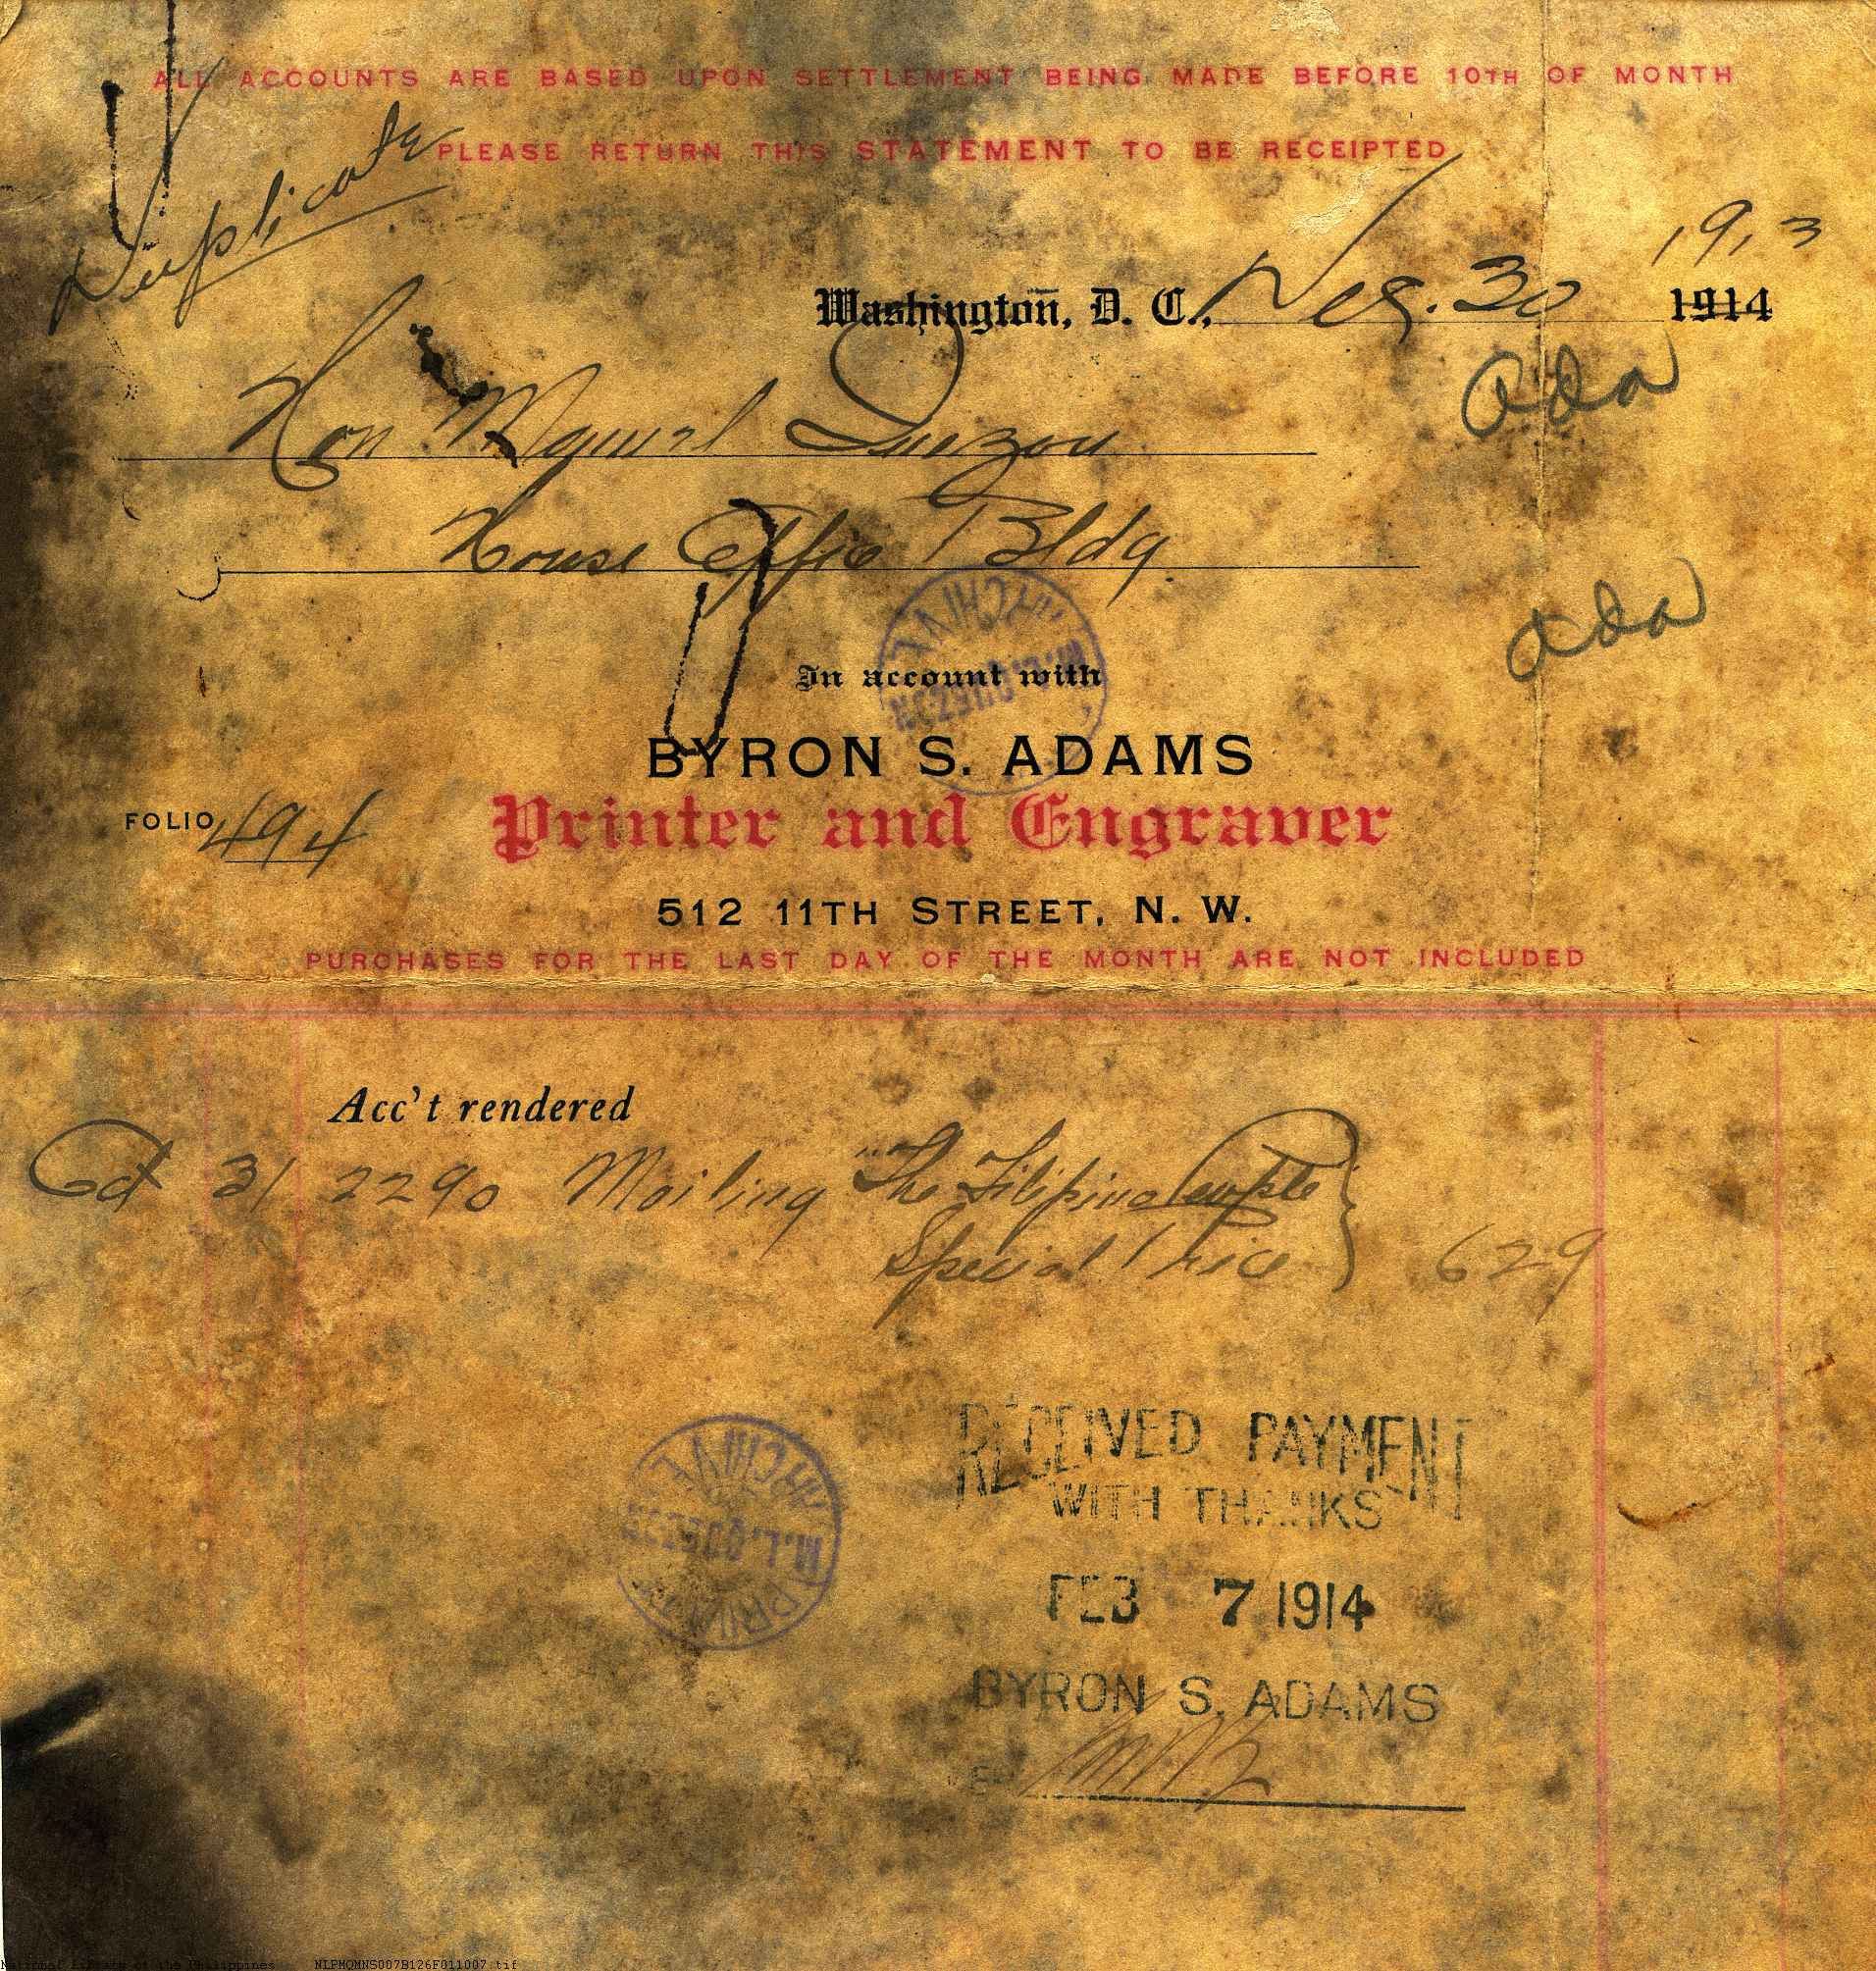 ALL ACCOUNTS ARE BASED UPON SETTLEMENT BEING MADE BEFORE 10TH OF MONTH
PLEASE RETURN THIS STATEMENT TO BE RECEIPTED
Duplicate
1913
Washington, D. C., 30 1914
Hon Manuel Quezon
House Office Bldg.
ARCHIVE
M. L. QUEZON
In account with
BYRON S. ADAMS
FOLIO 494
Printer and Engraver
512 11TH STREET, N. W.
PURCHASES FOR THE LAST DAY OF THE MONTH ARE NOT INCLUDED
Acc't rendered
Oct 31 2290 Mailing "The Filipino People"
Special Price } 629
RECEIVED PAYMENT
WITH THANKS
ARCHIVE
M. L. QUEZON
FEB 7 1914
BYRON S. ADAMS
National Library of the Philippines NLPMQMNS007B126F011007.tif